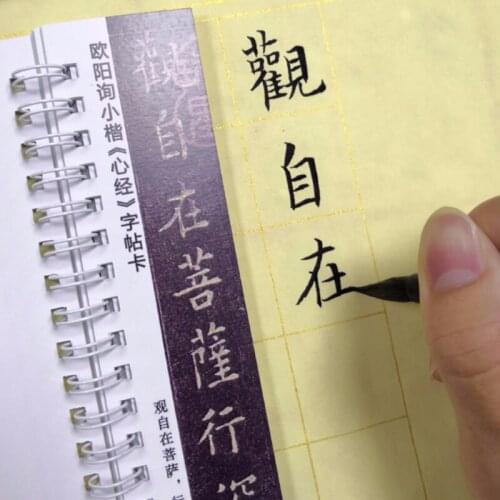 欧阳询小楷《心经》字帖卡
觀自在菩薩行深
观自在菩萨，行
觀自在